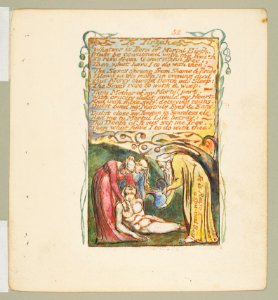 52
To Tirzah
Whate'er is Born of Mortal Birth,
Must be consumed with the Earth
To rise from Generation free;
Then what have I to do with thee?
The Sexes sprung from Shame & Pride
Blow'd in the morn; in evening died
But Mercy changd Death into Sleep;
The Sexes rose to work & weep.
Thou Mother of my Mortal part
With cruelty didst mould my Heart.
And with false self-decieving tears,
Didst bind my Nostrils Eyes & Ears.
Didst close my Tongue in senseless clay
And me to Mortal Life betray:
The Death of Jesus set me free,
Then what have I to do with thee?